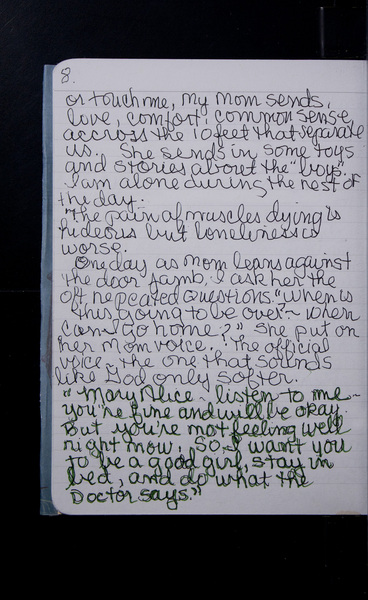 8.
or touch me, my mom sends,
love, comfort, common sense
accross the 10 feet that separate
us. She sends in some toys
and stories about the "boys".
I am alone during the rest of
the day.
The pain of muscles dying is
hideous but loneliness is
worse.
One day as mom leans against
the door jamb, I ask her the
oft repeated questions. "When is
this going to be over - when
can I go home?" She put on
her mom voice. The official
voice - the one that sounds
like God only softer.
"Mary Alice - listen to me -
you're fine and will be okay.
But you're not feeling well
right now. So, I want you
to be a good girl, stay in
bed, and do what the
Doctor says."